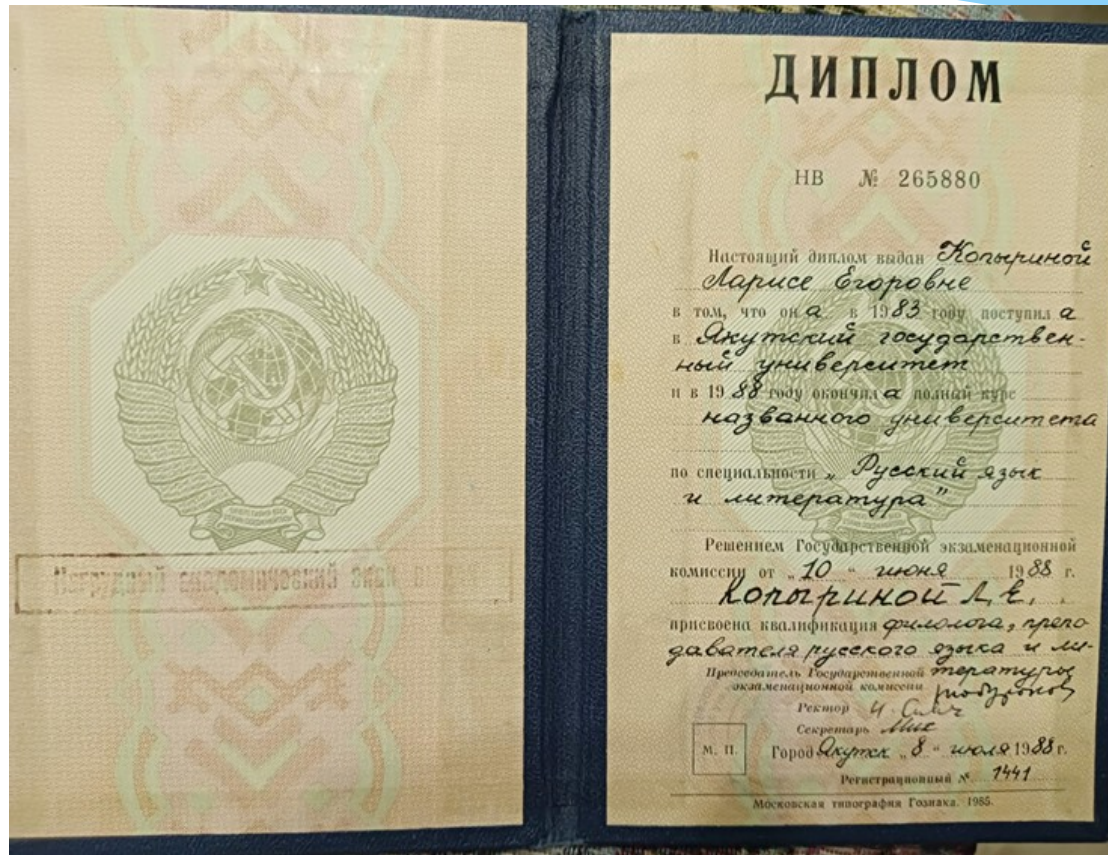 ДИПЛОМ
НВ № 265880
Настоящий диплом выдан Копыриной
Ларисе Егоровне
в том, что она в 1983 году поступила
в Якутский государствен-
ный университет
и в 1988 году окончила полный курс
названного университета
по специальности „Русский язык
и литература"
Решением Государственной экзаменационной
комиссии от „10" июня 1988 г.
Копыриной Л. Е.
присвоена квалификация филолога, препо
давателя русского языка и ли-
тературы
Председатель Государственной
экзаменационной комиссии
Ректор
Секретарь
М. П.
Город Якутск „8" июля 1988 г.
Регистрационный № 1441
Московская типография Гознака. 1985.